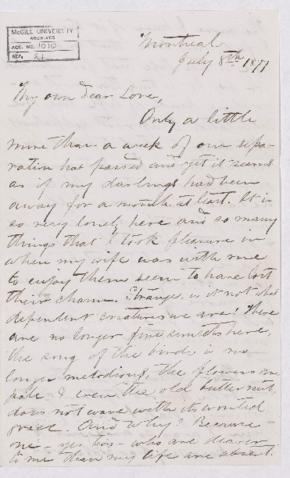 McGILL UNIVERSITY
ARCHIVES
ACC. NO. 1010
REF.
Montreal
July 8th 1877
My own dear Love,
Only a little
more than a week of our sepa-
ration has passed and yet it seems
as if my darlings had been
away for a month at least. It is
so very lonely here and so many
things that I took pleasure in
when my wife was with me
to enjoy them seem to have lost
their charm. Strange, is it not what
dependent creatures we are! There
are no longer fine sunsets here,
the song of the birds is no
longer melodious, the flowers are
pale & even the old butternut
does not wave with its wonted
grace. And why? Because
one - yes two - who are dearer
to me than my life are absent.